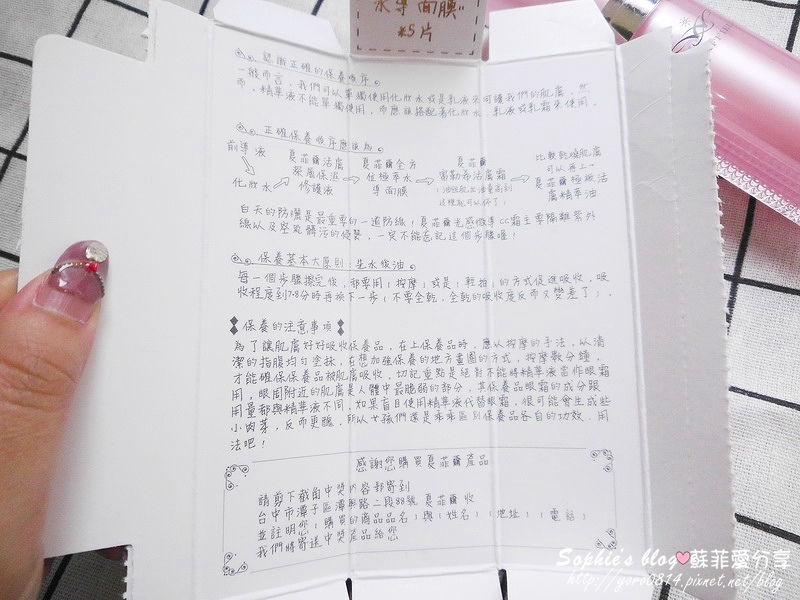 水導面膜"
*5片
認識正確的保養順序
一般而言,我們可以單獨使用化妝水或是乳液來呵護我們的肌膚,然
而,精華液不能單獨使用,而應該搭配著化妝水、乳液或乳霜來使用。
正確保養順序應該為
前導液
化妝水
夏菲爾活膚
聚層保濕
修護液
夏菲爾全方
位極萃水
導面膜
夏菲爾
富勒希活膚霜
比較乾燥肌膚
可以再上
夏菲爾極緻活
膚精萃油
白天的防曬是最重要的一道防線!夏菲爾光感微季CC霜主要隔離紫外
線以及空氣髒污的侵襲,一定不能忘記這個步驟喔!
保養基本大原則:先水後油
每一個步驟擦完後,都要用「按摩」或是「輕拍」的方式促進吸收,吸
收程度到7-8分時再換下一步(不要全乾,全乾的吸收度反而又變差了)。
保養的注意事項
為了讓肌膚好好吸收保養品,在上保養品時,應以按摩的手法,以清
潔的指腹均勻塗抹,在想加強保養的地方畫圈的方式,按摩數分鐘,
才能確保保養品被肌膚吸收,切記重點是絕對不能將精華液當作眼霜
用,眼周附近的肌膚是人體中最脆弱的部分,其保養品眼霜的成分跟
用量都與精華液不同,如果盲目使用精華液代替眼霜,很可能會生成些
小肉芽,反而更醜,所以女孩們還是乖乖區別保養品各自的功效、用
法吧!
感謝您購買夏菲爾產品
請剪下截角中獎內容郵寄到
台中市潭子區潭興路二段88號 夏菲爾 收
並註明您「購買的商品品名」與「姓名」「地址」「電話」
我們將寄送中獎產品給您
Sophie's blog♥蘇菲愛分享
http://yoro0814.pixnet.net/blog